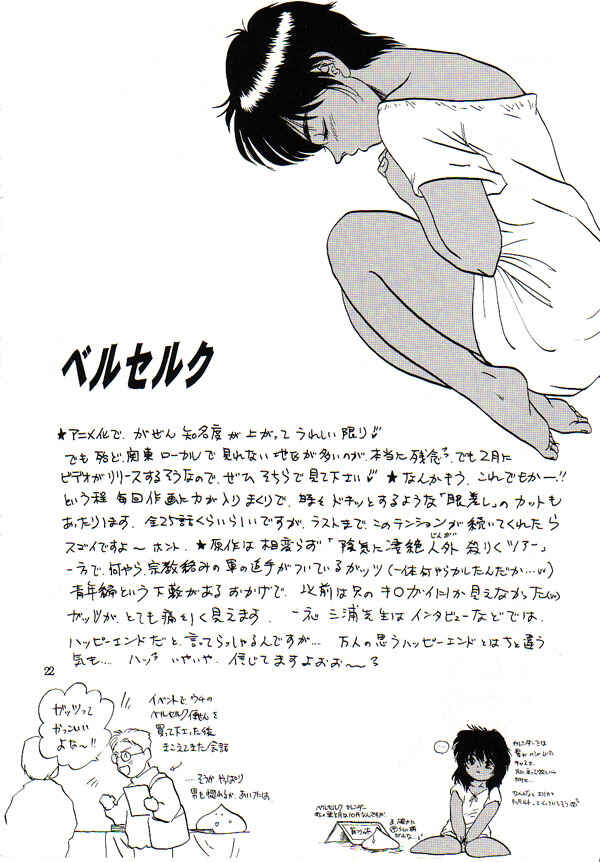 ベルセルク
★アニメ化で、がぜん知名度が上がってうれしい限り
でも殆ど、関東ローカルで見れない地区が多いのが、本当に残念。でも2月に
ビデオがリリースするそうなので、ぜひそちらで見て下さい ★なんかもう、これでもかー!!
という程毎回作画に力が入りまくりで、時々ドキッとするような「眼差し」のカットも
あったります。全25話くらいらしいですが、ラストまで、このテンションが続いてくれたら
スゴイですよ〜ホント。★原作は相変らず「陰気に凄絶人外殺りくツアー」
一方で、何やら宗教絡みの軍の追手がついているガッツ(一体何やらかしたんだか…)
青年編という下敷があるおかげで、以前は只のキ○ガイにしか見えなかった
ガッツが、とても痛々しく見えます。一応三浦先生はインタビューなどでは、
ハッピーエンドだと、言ってらっしゃるんですが… 万人の思うハッピーエンドとはちと違う
気も… ハッ いやいや、信じてますよおお〜〜
22
ガッツって
かっこいい
よな〜!!
イベントでウチの
ベルセルク便せんを
買って下さった後
きこえてきた会話
…そうかやっぱり
男も惚れるか、あいつは
ベルセルク カレンダー
カレンダーでは